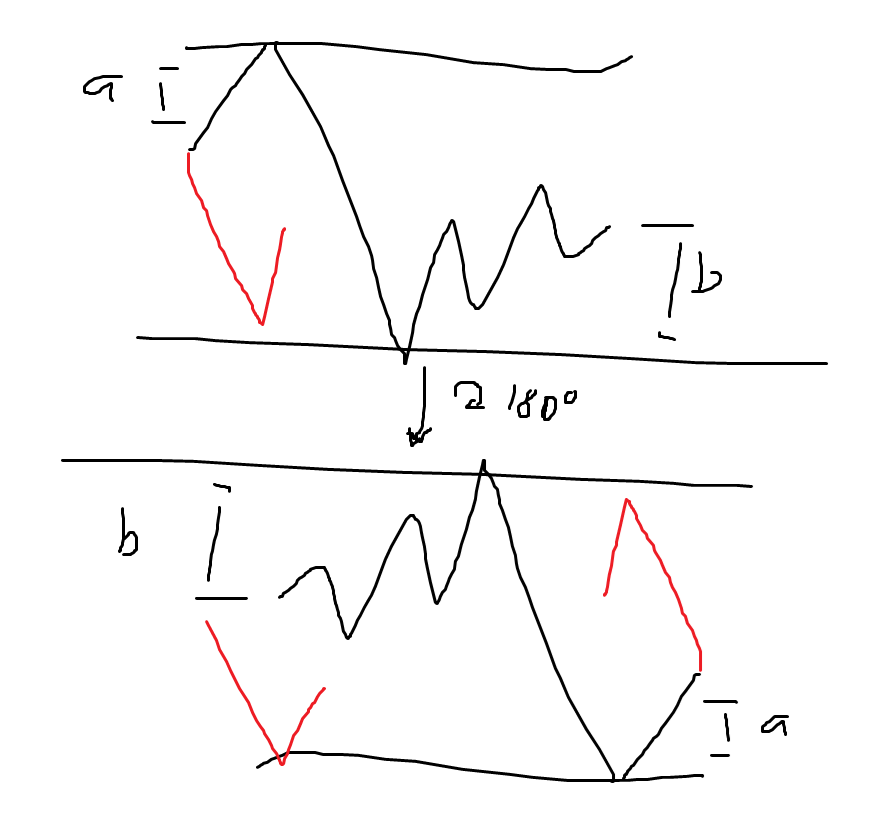 a
b
2 180°
b
a